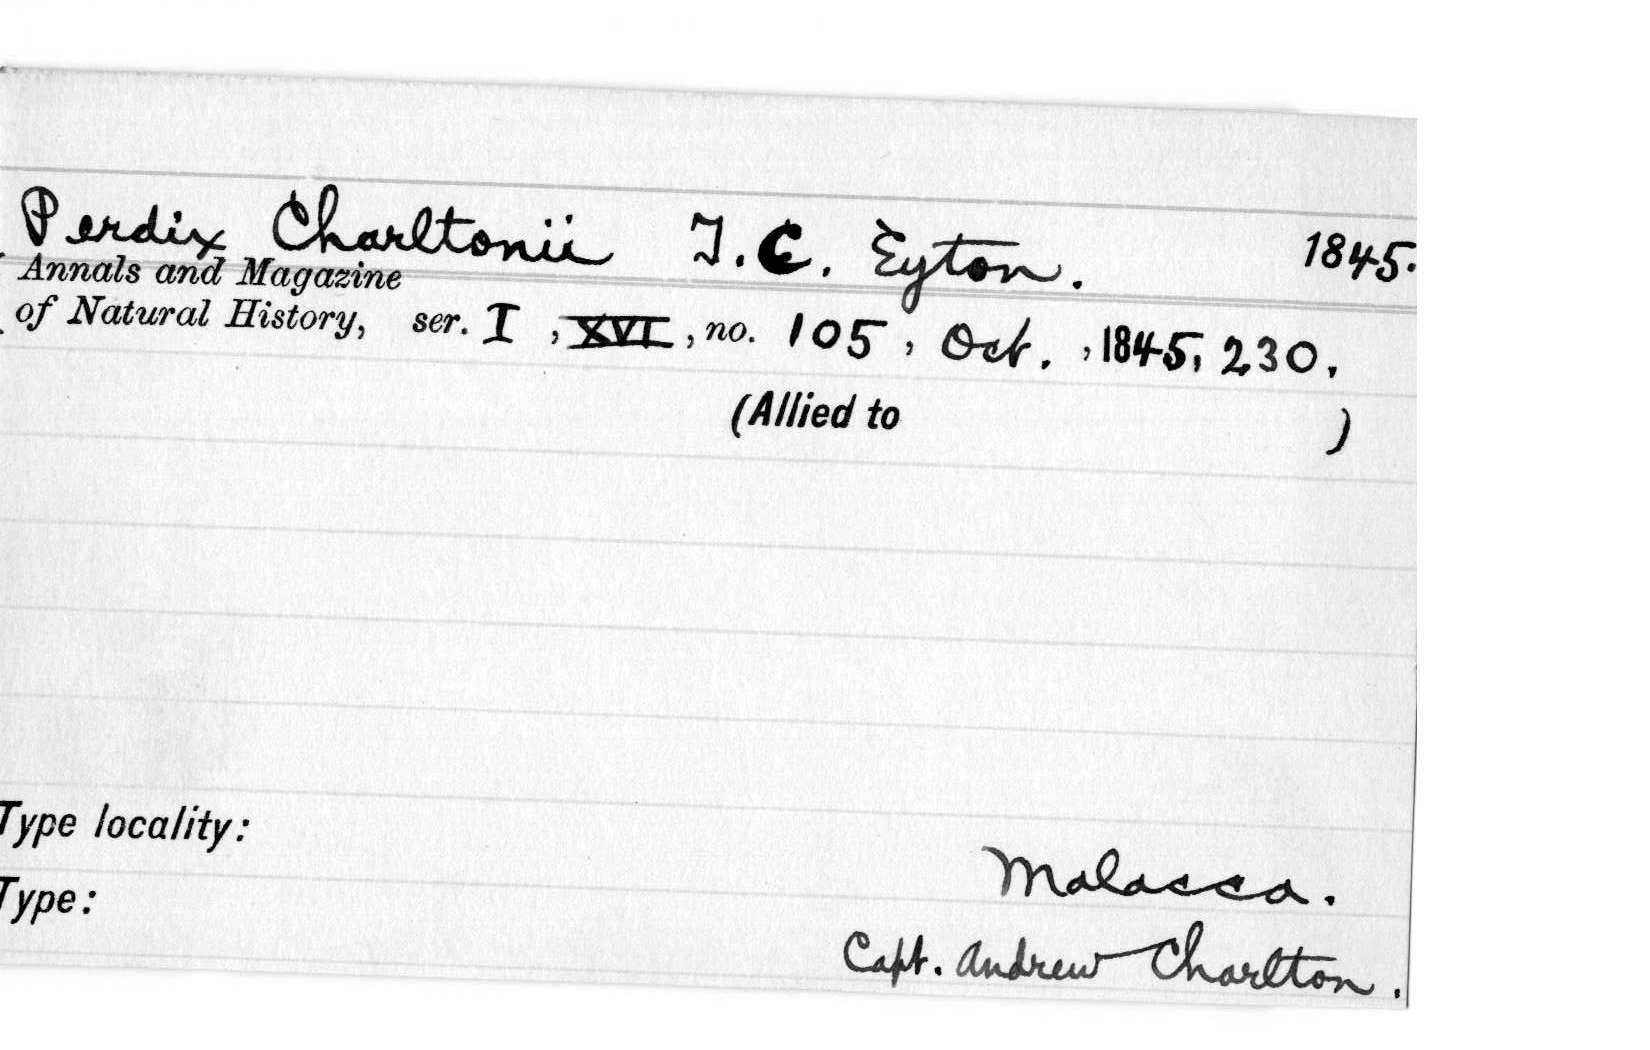 Perdix Charltonii T.C. Eyton. 1845.
Annals and Magazine
of Natural History, ser. I, XVI, no. 105, Oct., 1845, 230.
(Allied to )
Type locality:
Malacca.
Type:
Capt. Andrew Charlton.